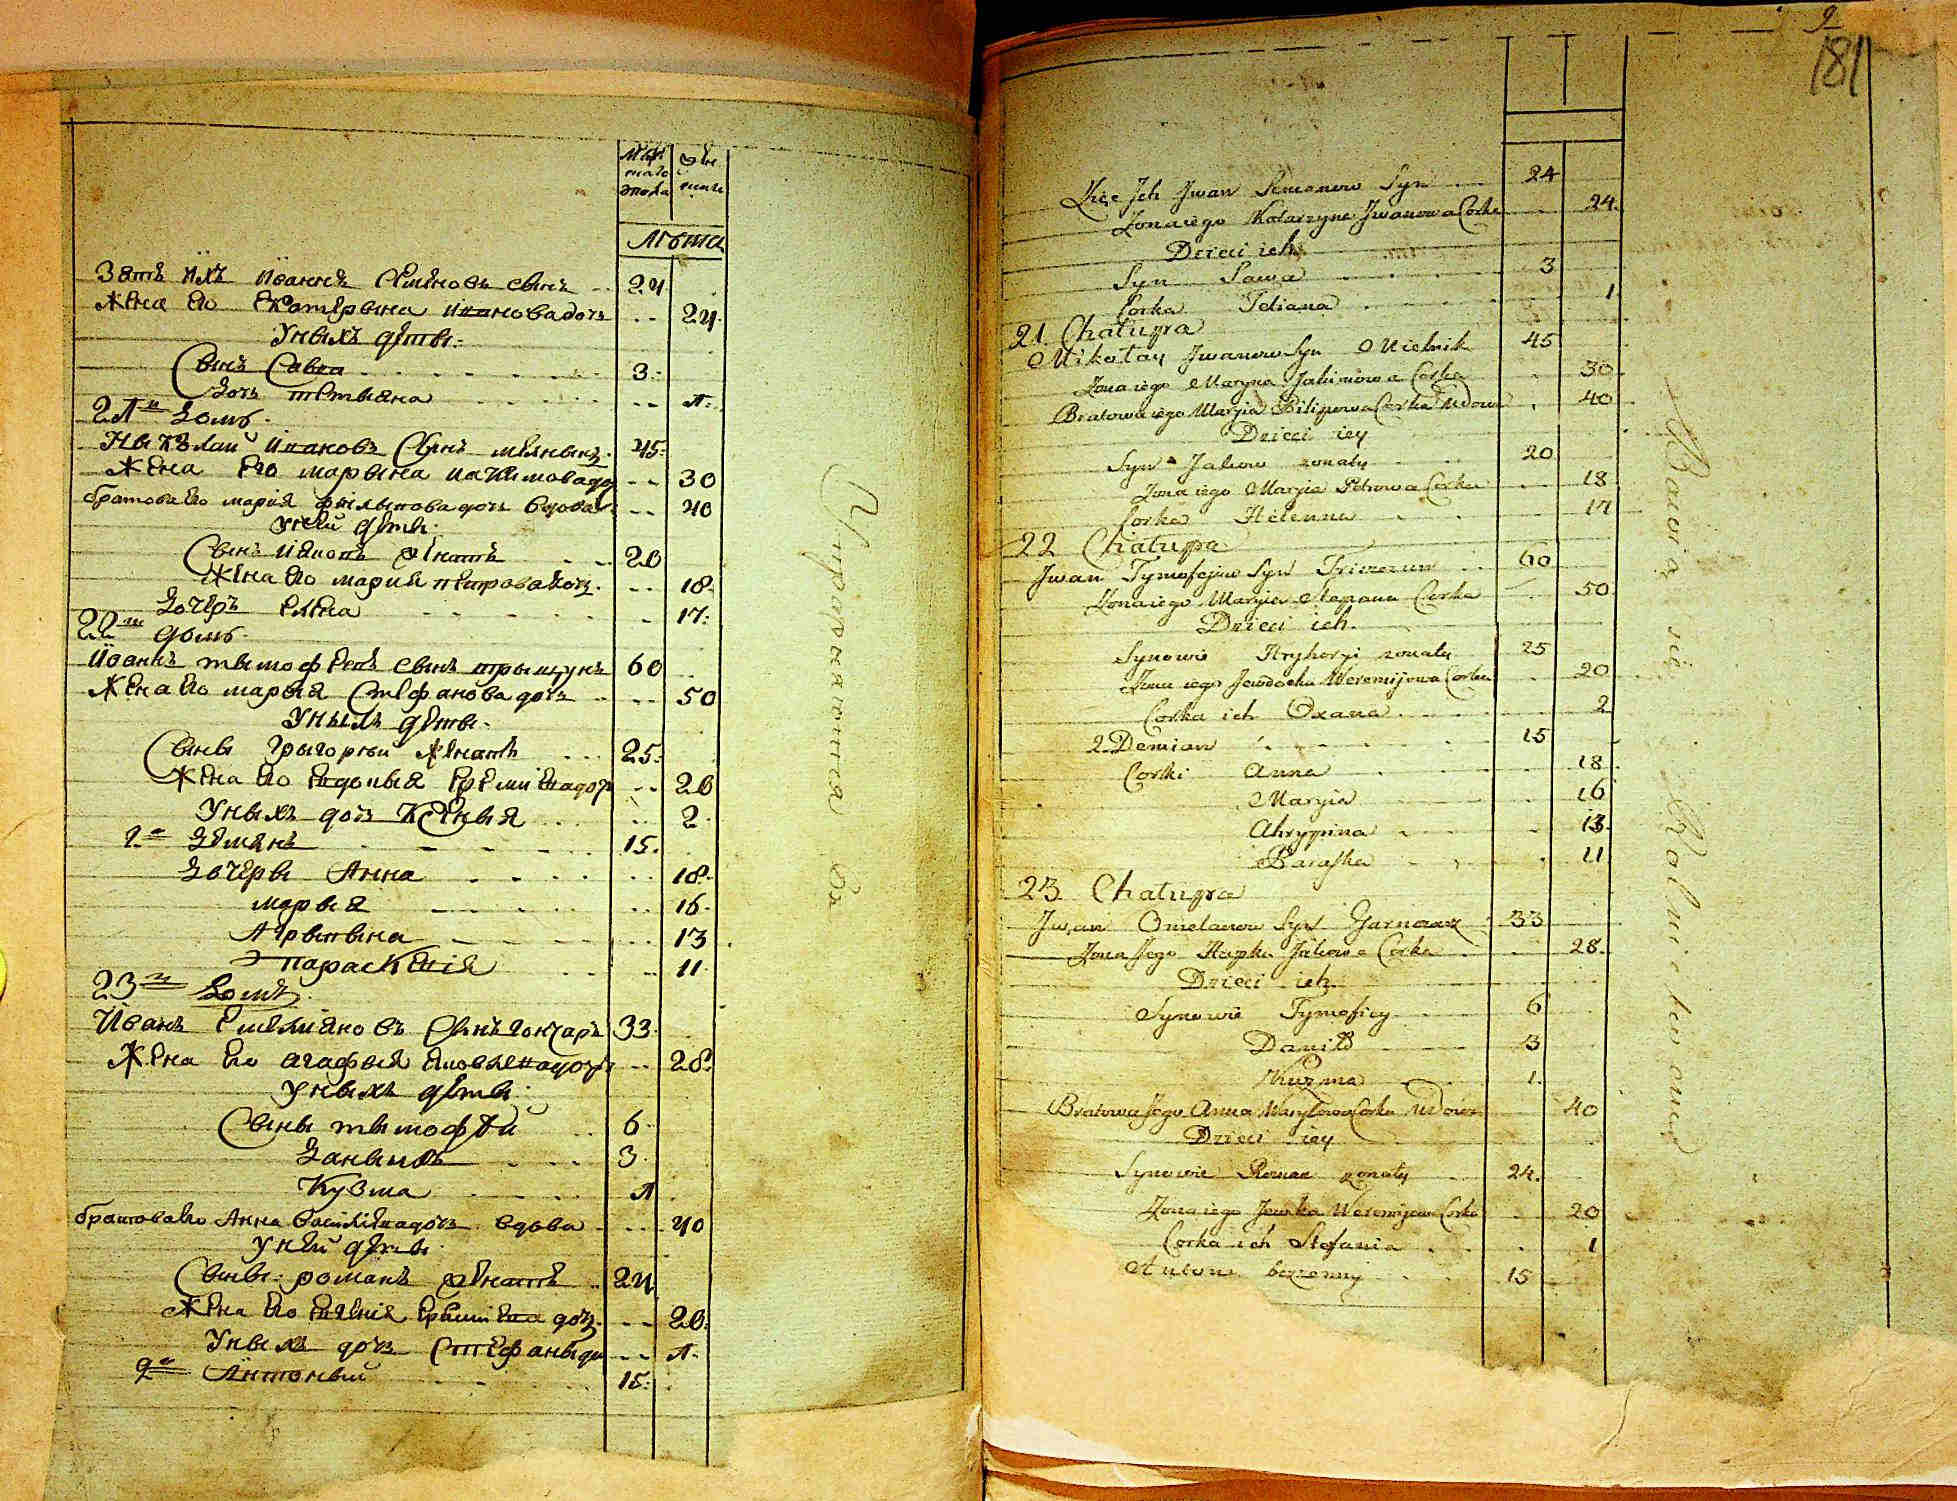 мужеска пола
женска
Лѣта
Зять ихъ Иоаннъ Семѣновъ сынъ 24
Жена его Екатерина Ивановадочъ 24
Уныхъ дѣти
Сынъ Савва 3
Дочь Тетыяна 1
21й домъ
Ныколай Ивановъ Сынъ мелнык 45
Жена его марына Иакимовадо 30
братова его мария Филыповадочъ вдова 40
Уней дѣти
Сынъ Иаковъ женатъ 20
Жена его мария петровадочъ 18
Дочеръ елена 17
22й домъ
Иоаннъ тымофѣевъ сынъ 60
Жена его мария Стефановадочъ 50
Уныхъ дѣти
Сыны Грыгорий женатъ 25
Жена его Евдокыя Еремѣевадочъ 20
Уныхъ дочъ Ксеныя 2
2й Демянъ 15
Дочеры Анна 18
марыя 16
Агрыпына 13
Параскевия 11
23й Домъ
Иванъ Емелияновъ Сынъ гончаръ 33
Жена его агафыя Яковлевадочъ 28
Уныхъ дѣти
Сыны тымофѣй 6
Даныилъ 3
Кузма 1
братоваего Анна Василиевадочъ вдова 40
Уней дѣти
Сыны романъ женатъ 24
Жена его Евгения Еремиева дочъ 20
Уныхъ дочъ Стефаныда 1
2й Антоный 15
9
181
Zięć Ich Jwan Semenow Syn 24
Zona iego Katarzyna Jwanowa Corka 24
Dzieci ich
Syn Sawa 3
Corka Tetiana 1
21 Chałupa
Mikołay Jwanow Syn Mielnik 45
Zona iego Maryna Jakimowa Corka 30
Bratowa iego Maryia Pilipowa Corka Wdowa 40
Dzieci iey
Syn Jakow zonaty 20
Zona iego Maryia Petrowa Corka 18
Corka Helenna 17
22 Chałupa
Jwan Tymofejew Syn 60
Zona iego Maryia Stepana Corka 50
Dzieci ich
Synowie Hryhoryi zonaty 25
Zona iego Jewdocha Weremijowa Corka 20
Corka ich Oxana 2
2 Demian 15
Corki Anna 18
Maryia 16
Ahrypina 13
Paraska 11
23 Chałupa
Jwan Omelanow Syn Garncarz 33
Zona Jego Hapka Jakowa Corka 28
Dzieci ich
Synowie Tymofiey 6
Daniło 3
Kuzma 1
Bratowa Jego Anna Wasylowa Corka Wdowa 40
Dzieci iey
Synowie Roman zonaty 24
Zona iego Jewka Weremijowa Corka 20
Corka ich Stefania 1
Anton bezzenny 15